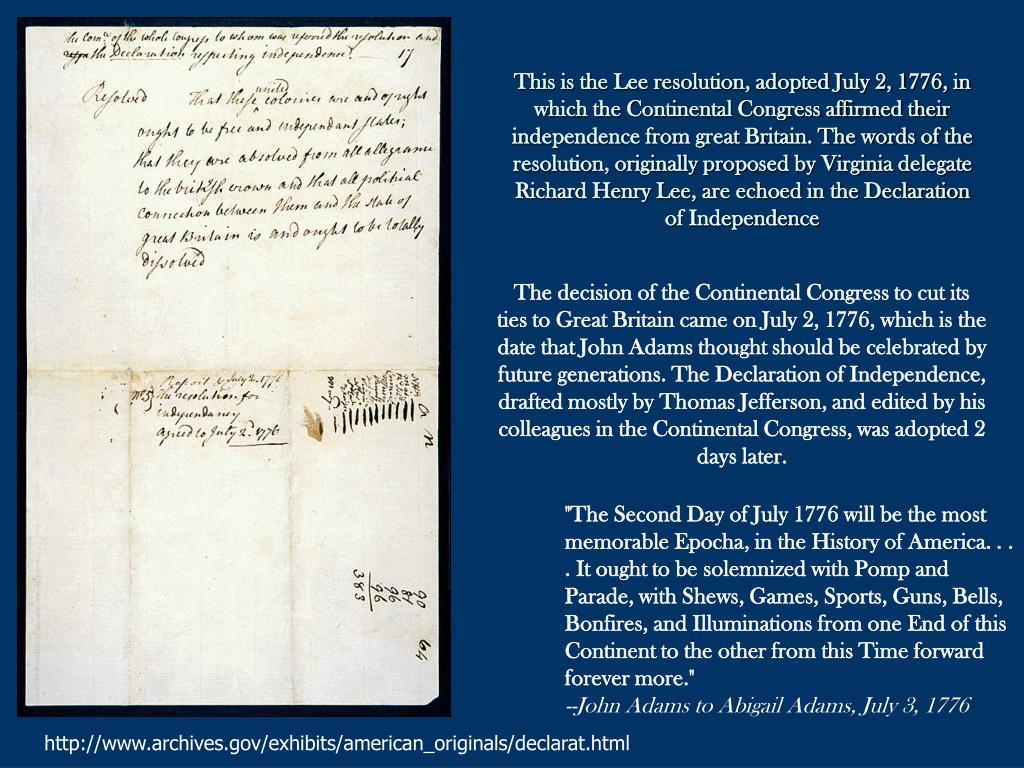 the Com.ee of the whole Congress to whom was referred the resolution and
the Declaration respecting independence. 17
Resolved That these united colonies are and of right
ought to be free and independant states;
that they are absolved from all allegiance
to the british crown and that all political
connection between them and the state of
great Britain is and ought to be totally
dissolved
July 2. 1776
the resolution for
independancy
agreed to July 2. 1776
90
81
96
96
383
64
This is the Lee resolution, adopted July 2, 1776, in
which the Continental Congress affirmed their
independence from great Britain. The words of the
resolution, originally proposed by Virginia delegate
Richard Henry Lee, are echoed in the Declaration
of Independence
The decision of the Continental Congress to cut its
ties to Great Britain came on July 2, 1776, which is the
date that John Adams thought should be celebrated by
future generations. The Declaration of Independence,
drafted mostly by Thomas Jefferson, and edited by his
colleagues in the Continental Congress, was adopted 2
days later.
"The Second Day of July 1776 will be the most
memorable Epocha, in the History of America. . .
. It ought to be solemnized with Pomp and
Parade, with Shews, Games, Sports, Guns, Bells,
Bonfires, and Illuminations from one End of this
Continent to the other from this Time forward
forever more."
--John Adams to Abigail Adams, July 3, 1776
http://www.archives.gov/exhibits/american_originals/declarat.html